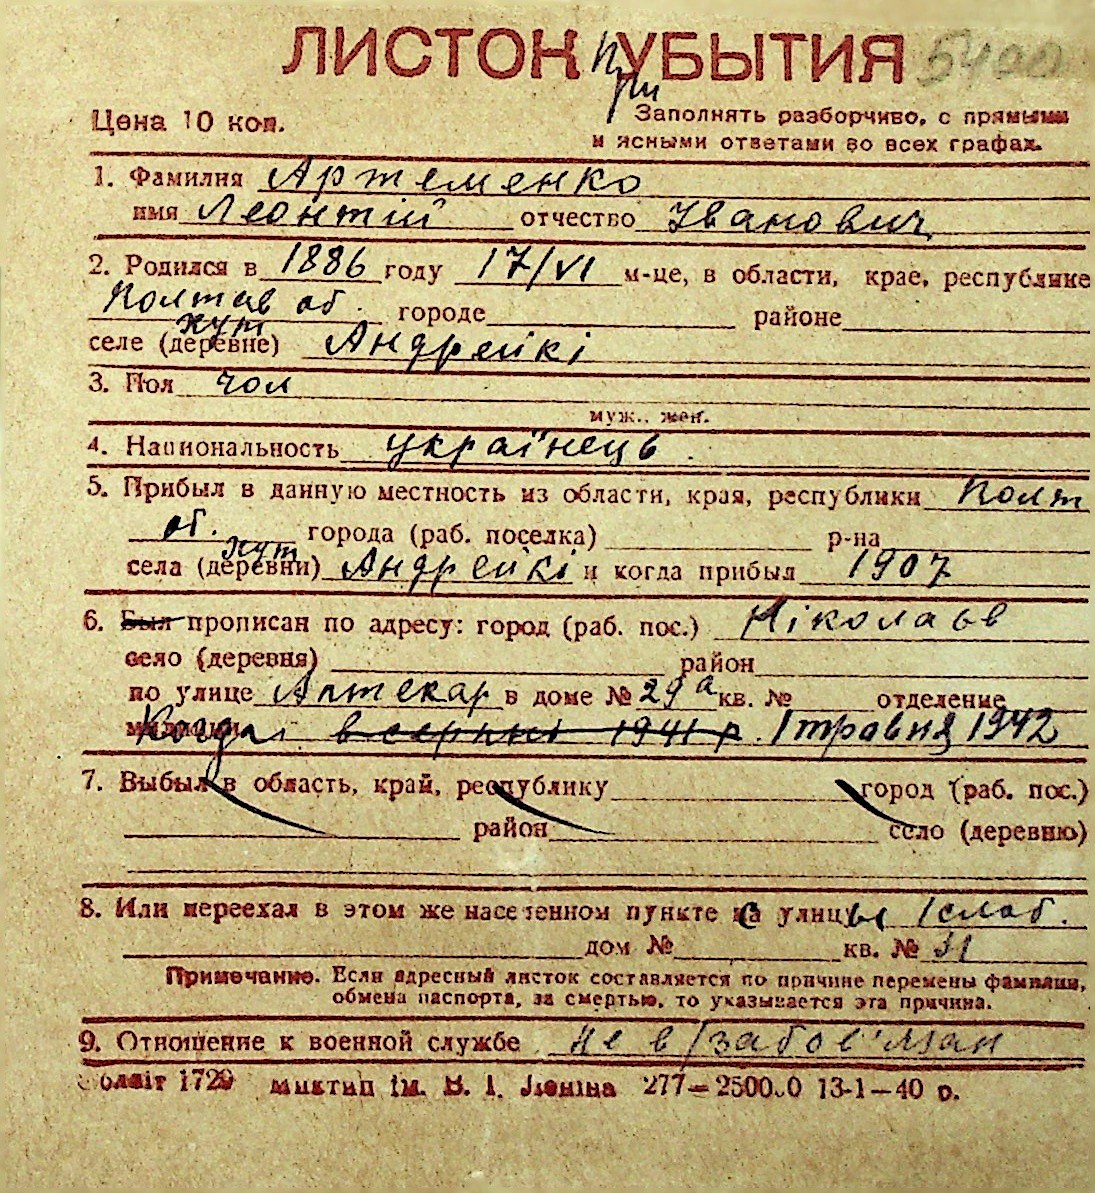 ЛИСТОК УБЫТИЯ 5400
При
Цена 10 коп. Заполнять разборчиво, с прямыми
и ясными ответами во всех графах.
1. Фамилия Артеменко
имя Леонтій отчество Іванович
2. Родился в 1886 году 17/VI м-це, в области, крае, республике
Полтав об. городе районе
хут
селе (деревне) Андрейкі
3. Пол чол
муж., жен.
4. Национальность українець.
5. Прибыл в данную местность из области, края, республики Полт
об. города (раб. поселка) р-на
хут
села (деревни) Андрейкі и когда прибыл 1907
6. Был прописан по адресу: город (раб. пос.) Ніколаєв
село (деревня) район
по улице Аптекар в доме № 29а кв. № отделение
милиции Когда і в серпні 1941 р. 1 травня 1942
7. Выбыл в область, край, республику город (раб. пос.)
район село (деревню)
8. Или переехал в этом же населенном пункте с улицы 1 слоб.
дом № кв. № 31
Примечание. Если адресный листок составляется по причине перемены фамилии,
обмена паспорта, за смертью, то указывается эта причина.
9. Отношение к военной службе не в/забов'язан
1729 Миктип ім. В. І. Леніна 277—250000 13-1—40 р.